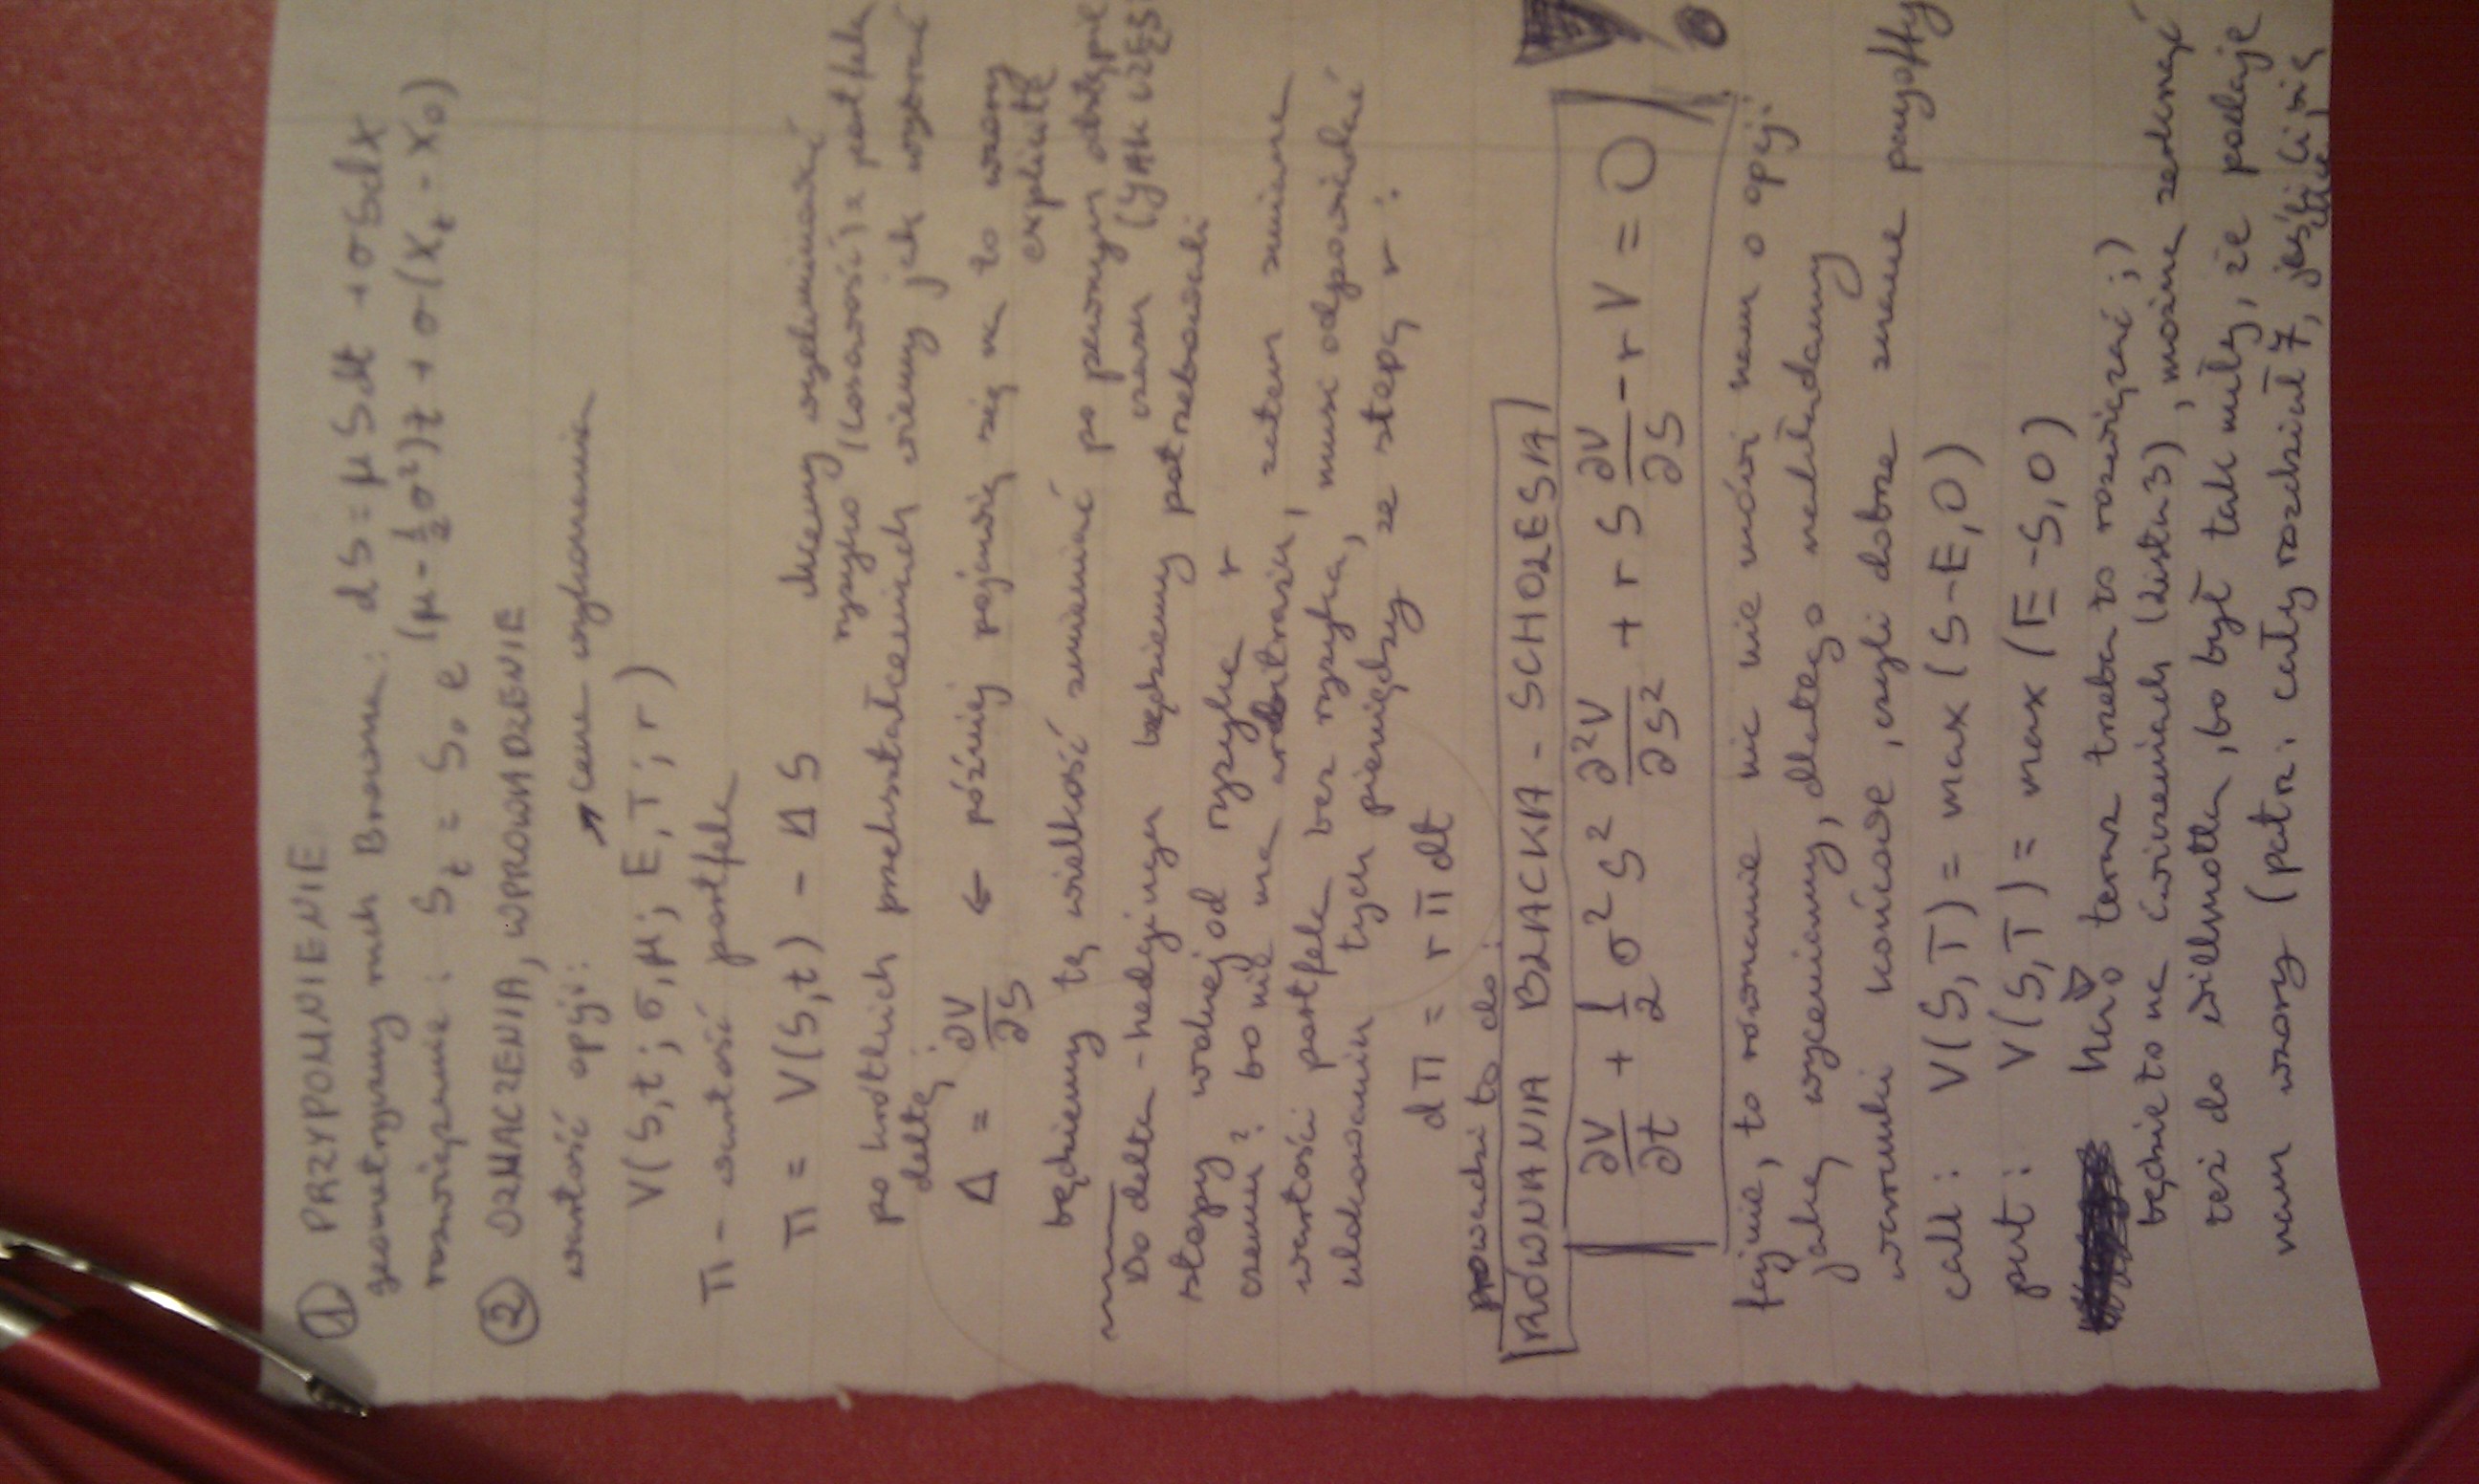 ① PRZYPOMNIENIE
geometryczny ruch Browna: dS = μSdt + σSdX
rozwiązanie: S_t = S_0 e^{(μ - 1/2 σ²)t + σ(X_t - X_0)}
② OZNACZENIA, WPROWADZENIE
wartość opcji: ↗ cena wykonania
V(S,t; σ,μ; E,T; r)
Π - wartość portfela
Π = V(S,t) - ΔS
chcemy wyeliminować
ryzyko (losowość) z portfela
po krótkich przekształceniach wiemy jak wybrać
deltę:
Δ = ∂V/∂S ← później pojawią się na to wzory
explicite
będziemy tę wielkość zmieniać po pewnym odstępie
czasu (JAK CZĘS
Do delta-hedgingu będziemy potrzebowali
stopy wolnej od ryzyka r
czemu? bo nie ma arbitrażu, zatem zmiana
wartości portfela bez ryzyka, musi odpowiadać
ulokowaniu tych pieniędzy ze stopą r:
dΠ = rΠdt
prowadzi to do:
RÓWNANIA BLACKA-SCHOLESA
∂V/∂t + 1/2 σ²S² ∂²V/∂S² + rS ∂V/∂S - rV = 0 !
fajnie, to równanie nic nie mówi nam o opcji
jaką wyceniamy, dlatego nakładamy
warunki końcowe, czyli dobrze znane payoffy
call: V(S,T) = max(S-E,0)
put: V(S,T) = max(E-S,0)
teraz trzeba to rozwiązać ;)
będzie to na ćwiczeniach (Lista 3), można zerknąć
też do Willmotta, bo był tak miły, że podaje
nam wzory (patrz: cały rozdział 7, jeśli Ci się
chce)